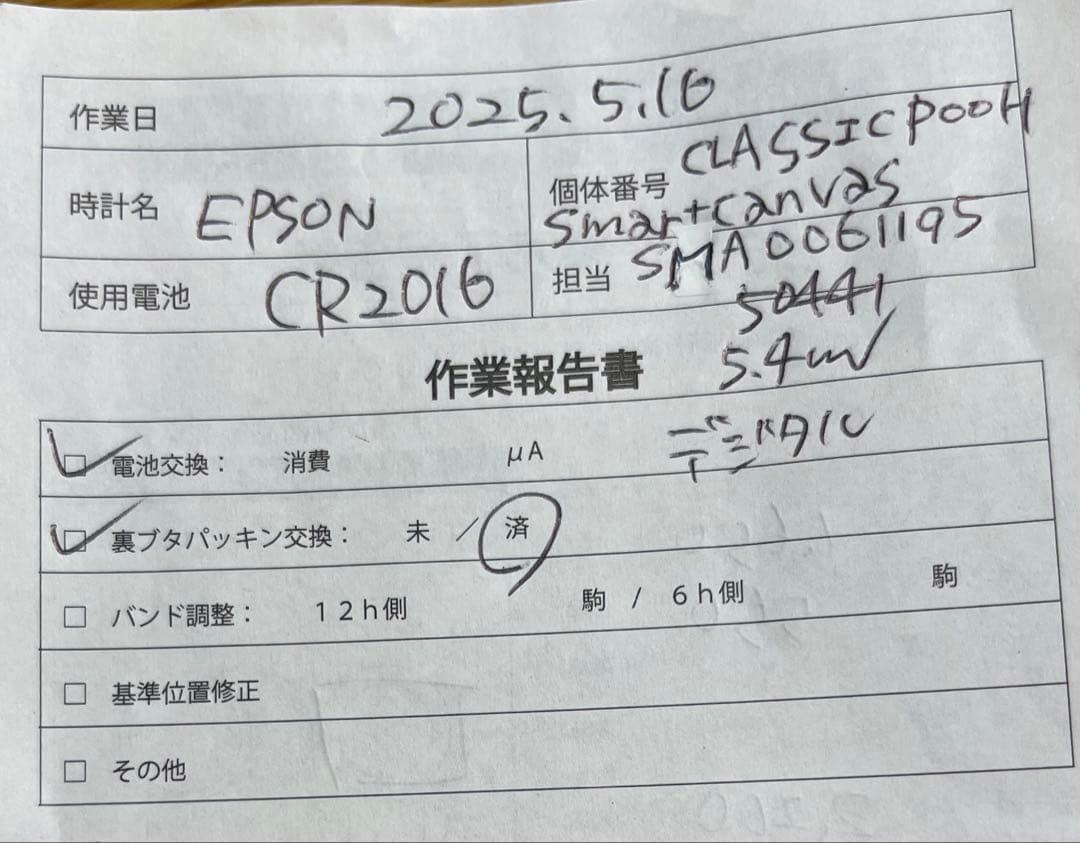 作業日 2025.5.16
時計名 EPSON
個体番号 CLASSIC POOH
Smart canvas
使用電池 CR2016
担当 SMA0061195
50441
作業報告書
5.4
電池交換： 消費 μA デジタル
裏ブタパッキン交換： 未 / 済
バンド調整： 12h側 駒 / 6h側 駒
基準位置修正
その他